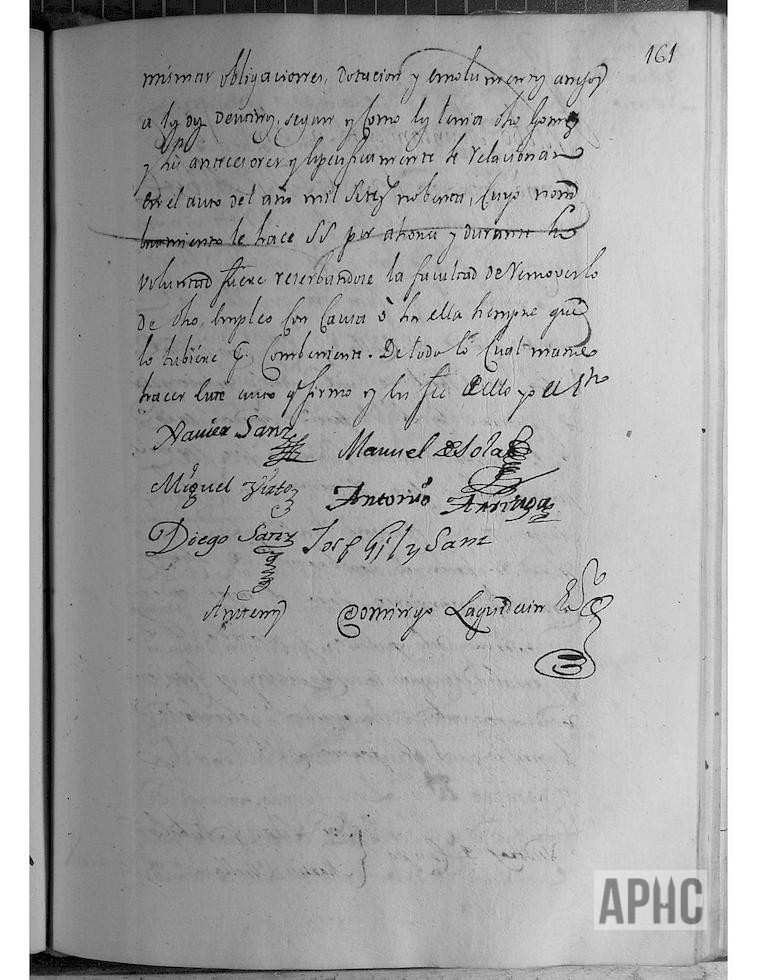 161
mismas obligaciones, dotacion y emolumentos anejos
a los de segun y como los tenia dho Gomez
y sus antecesores y especificamente se relacionan
en el auto del año mil setez nobenta, Cuyo nom
bramiento le hace SS por ahora y durante su
voluntad fuere reserbandose la facultad de removerlo
de dho empleo con causa ò sin ella siempre que
lo tubiere p.r Combeniente. De todo lo Cual mando
hacer este auto q firmo y en fee dello yo el ss.no
Xavier Sanz Manuel de Sola
Miguel Antonio Arizaga
Diego Sanz Josef Gil y Sanz
Antemi Domingo Laguiduin
APHC